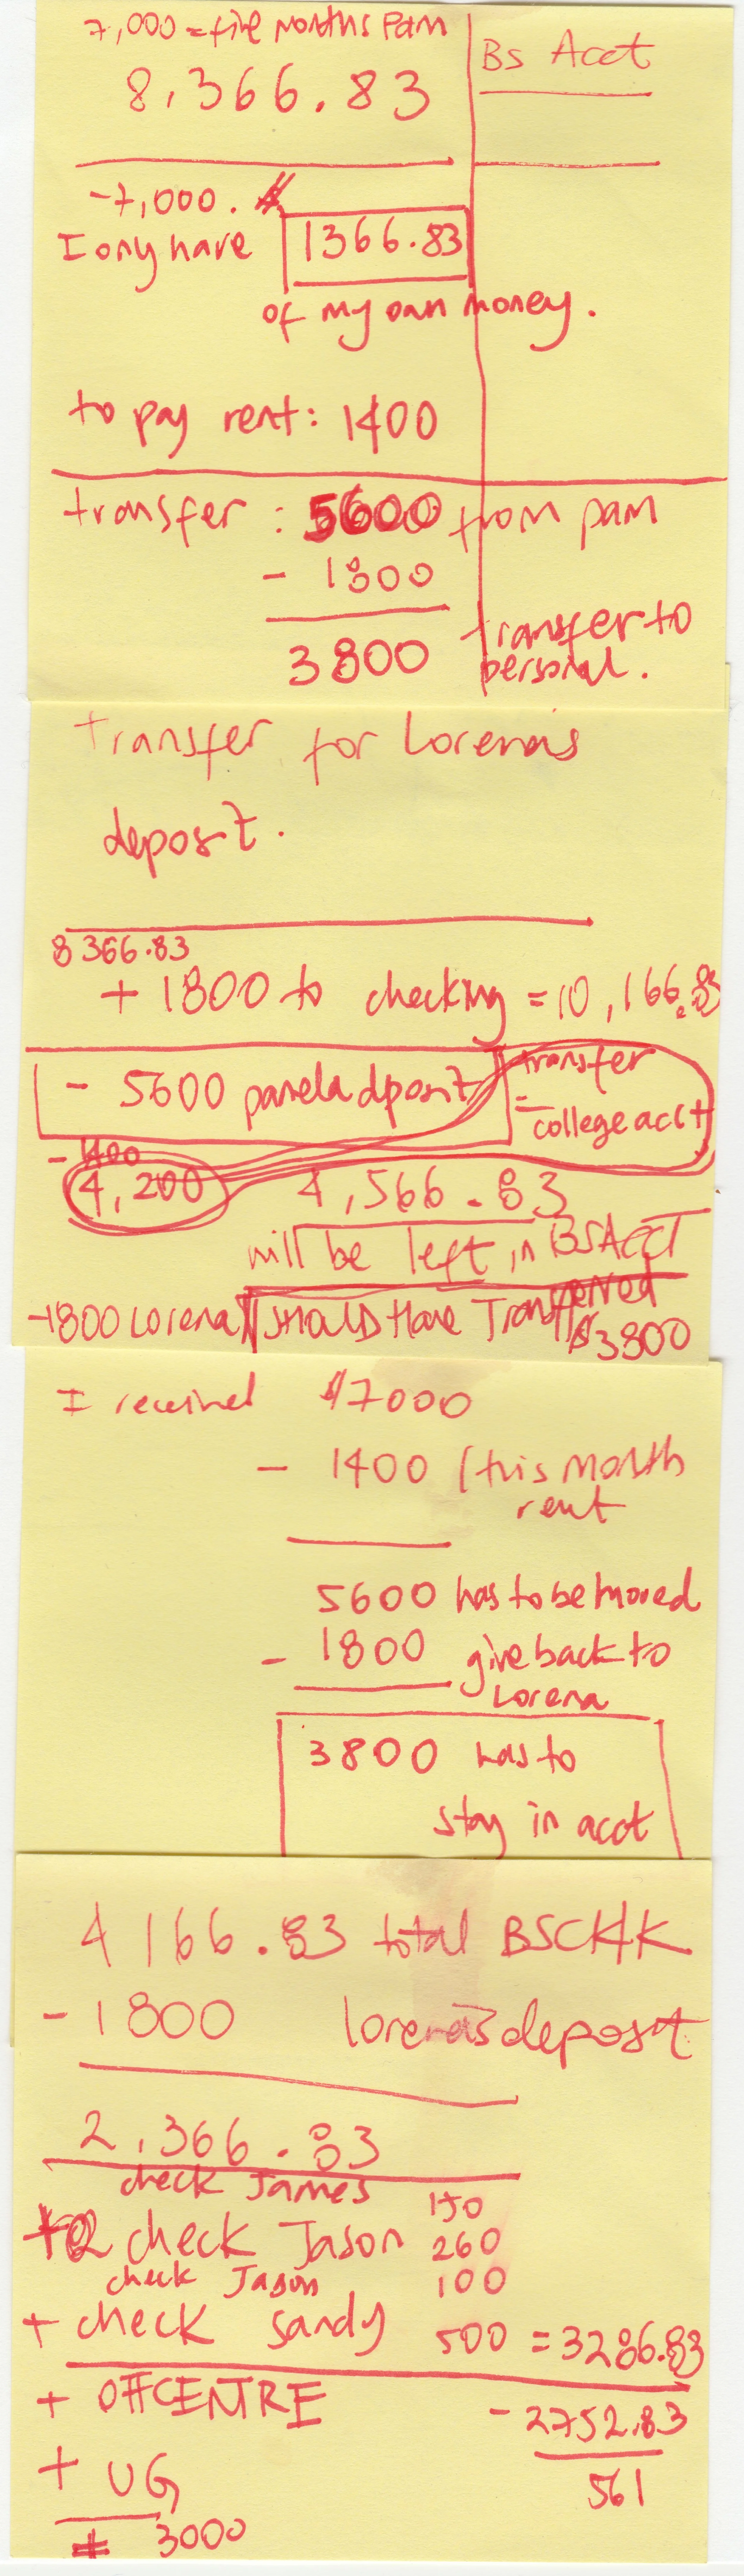 7,000 = five months Pam
Bs Acct
8,366.83
-7,000.
I ony have 1366.83
of my own money.
to pay rent: 1400
transfer : 5600 from pam
- 1800
3800 transfer to
personal.
transfer for Lorena's
deposit.
8366.83
+ 1800 to checking = 10,166.83
- 5600 pamela dposit
transfer
= college acct
- 1400
4,200
4,566.83
will be left in BSAccT
-1800 Lorena
SHOULD Have Transferred
$3800
I received $7000
- 1400 (this month
rent
5600 has to be moved
- 1800 give back to
Lorena
3800 has to
stay in acct
4166.83 total BSCHK
- 1800 lorena's deposit
2,366.83
check James 150
check Jason 260
check Jason 100
+ check sandy 500 = 3286.83
+ OFFCENTRE
- 2752.83
+ UG
561
3000